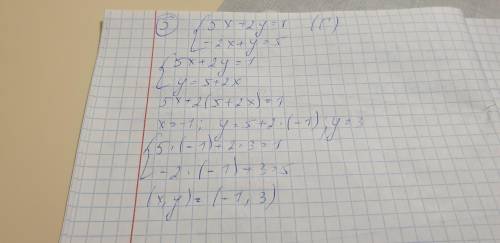 ③ { 5x+2y=1 (C)
-2x+y=5
{ 5x+2y=1
y=5+2x
5x+2(5+2x)=1
x=-1; y=5+2·(-1); y=3
{ 5·(-1)+2·3=1
-2·(-1)+3=5
(x, y)=(-1, 3)